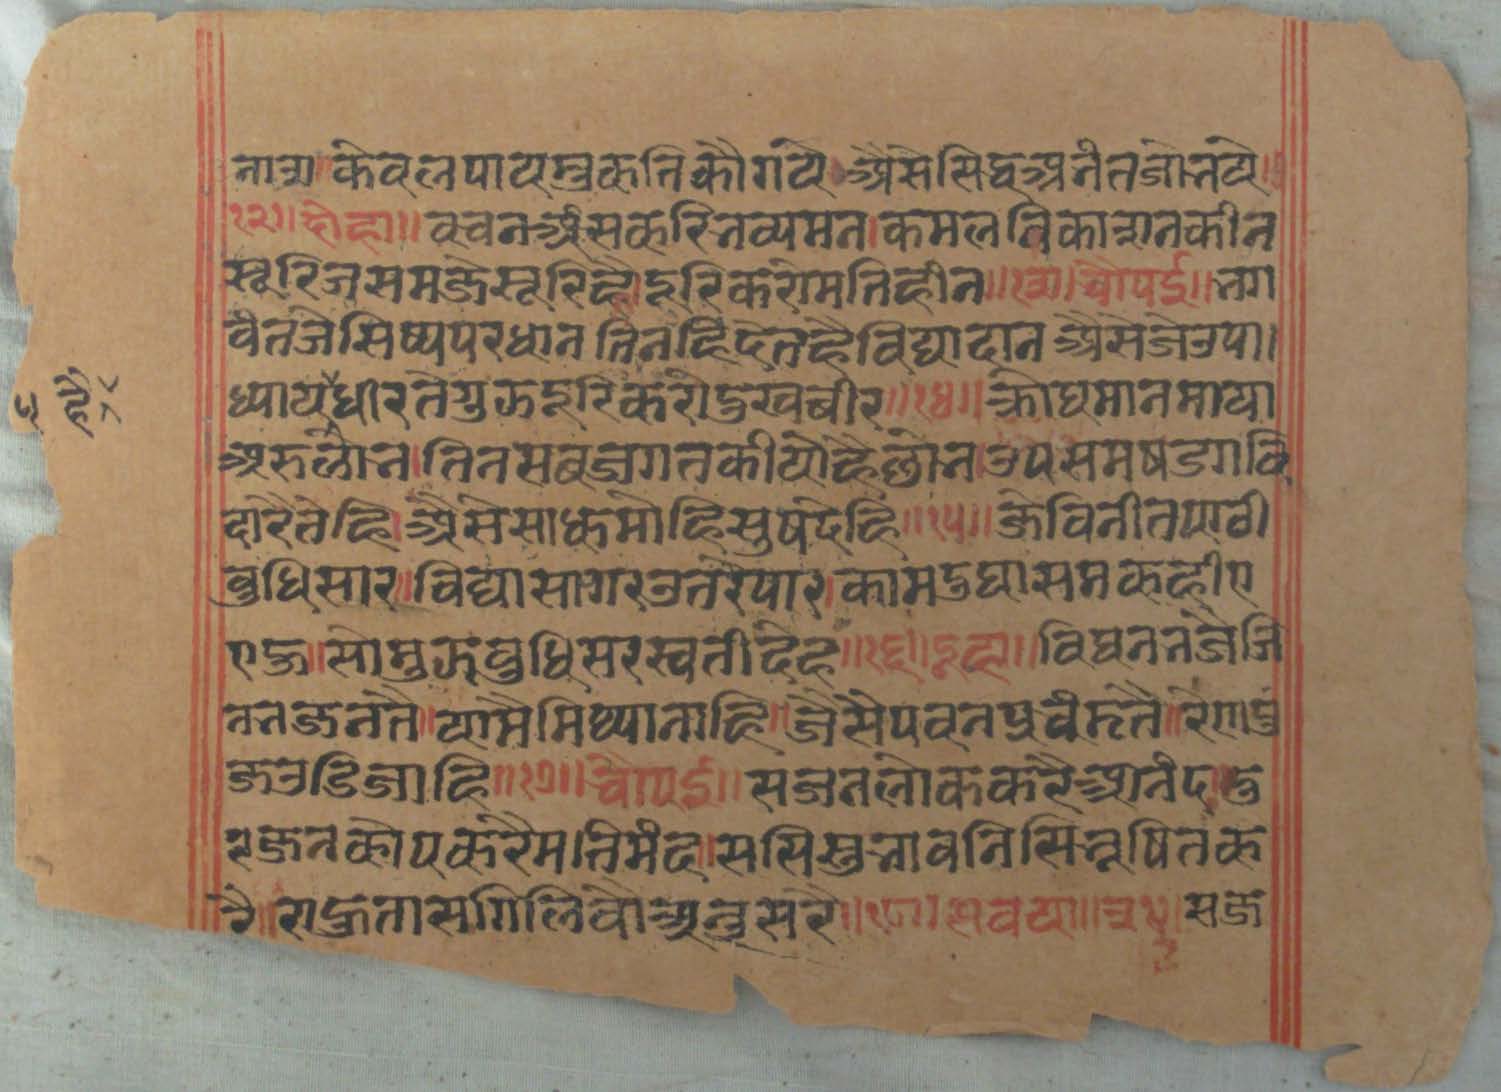 नाश केवलपायमुकतिकौगये अैसेसिद्धअनंतजोनये॥
१२॥दोहा॥ वचनअंसकरिनव्यमन।कमलविकाशनकीन
सूरिजसमजेसूरिहै।हरिकरोमतिहीन॥१३॥चौपई॥नग
वंतजेसिष्यपरधान तिनहिदेतहैविद्यादान अैसेजेउपा।
ध्यायधीर तेगुरूहरिकरोदुखबीर॥१४॥क्रोधमानमाया
अरुलोन।तिनसबजगतकीयोहैछोन।उपसमषडगवि
दारैतेहि।अैसेसाधमोहिसुषदेहि॥१५॥जेविनीतपाठी
बुधिसार॥विद्यासागरउतरेपार।कामदुघासमकहीए
एज॥सोमुझबुधिसरस्वतीदेह॥१६॥दूहा॥विघनतजैजि
ननजनतै॥यामैमिथ्यानाहि॥जैसेपवनप्रचंडतै॥रेणपुं
जउडिजाहि॥१७॥चौपई॥सजनलोककरैआनंद॥दु
रजनकोपकरैमतिमंद॥ससिसुनावनिसिनूषितक
रै॥राहुतासगिलिवोअनुसरै॥१८॥सवया॥२४॥सज